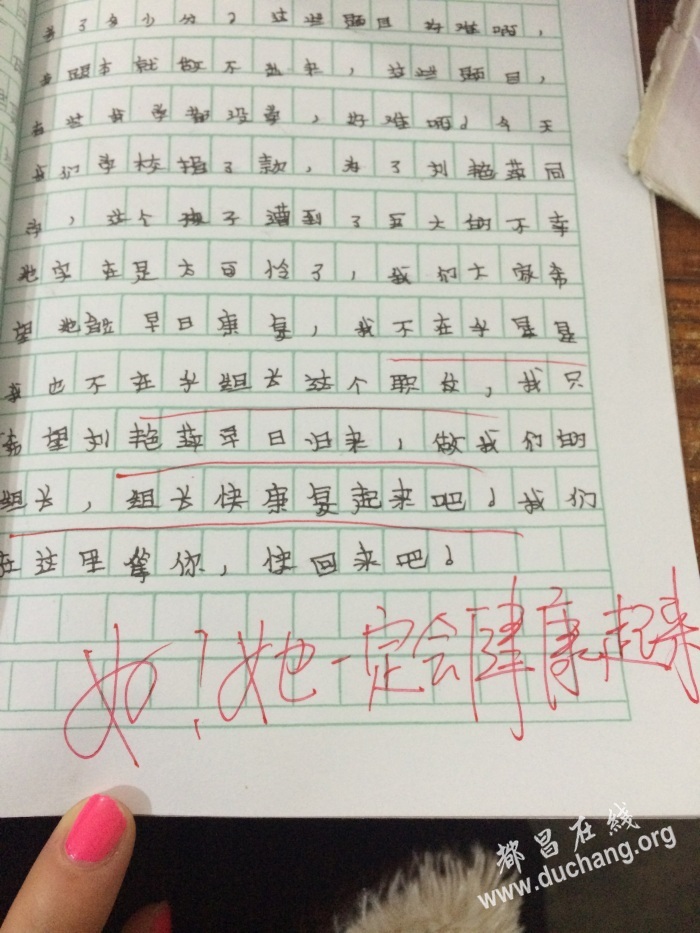 考了多少分？这些题目好难啊，
根本就做不出来，这些题目，
有些我学都没学，好难啊！今天
我们学校捐了款，为了刘艳苹同
学，这个孩子遭到了巨大的不幸
她实在是太可怜了，我们大家希
望她能早日康复，我不在乎星星
我也不在乎组长这个职位，我只
希望刘艳苹早日归来，做我们的
组长，组长快康复起来吧！我们
在这里等你，快回来吧！
好！她一定会健康起来
都昌在线
www.duchang.org